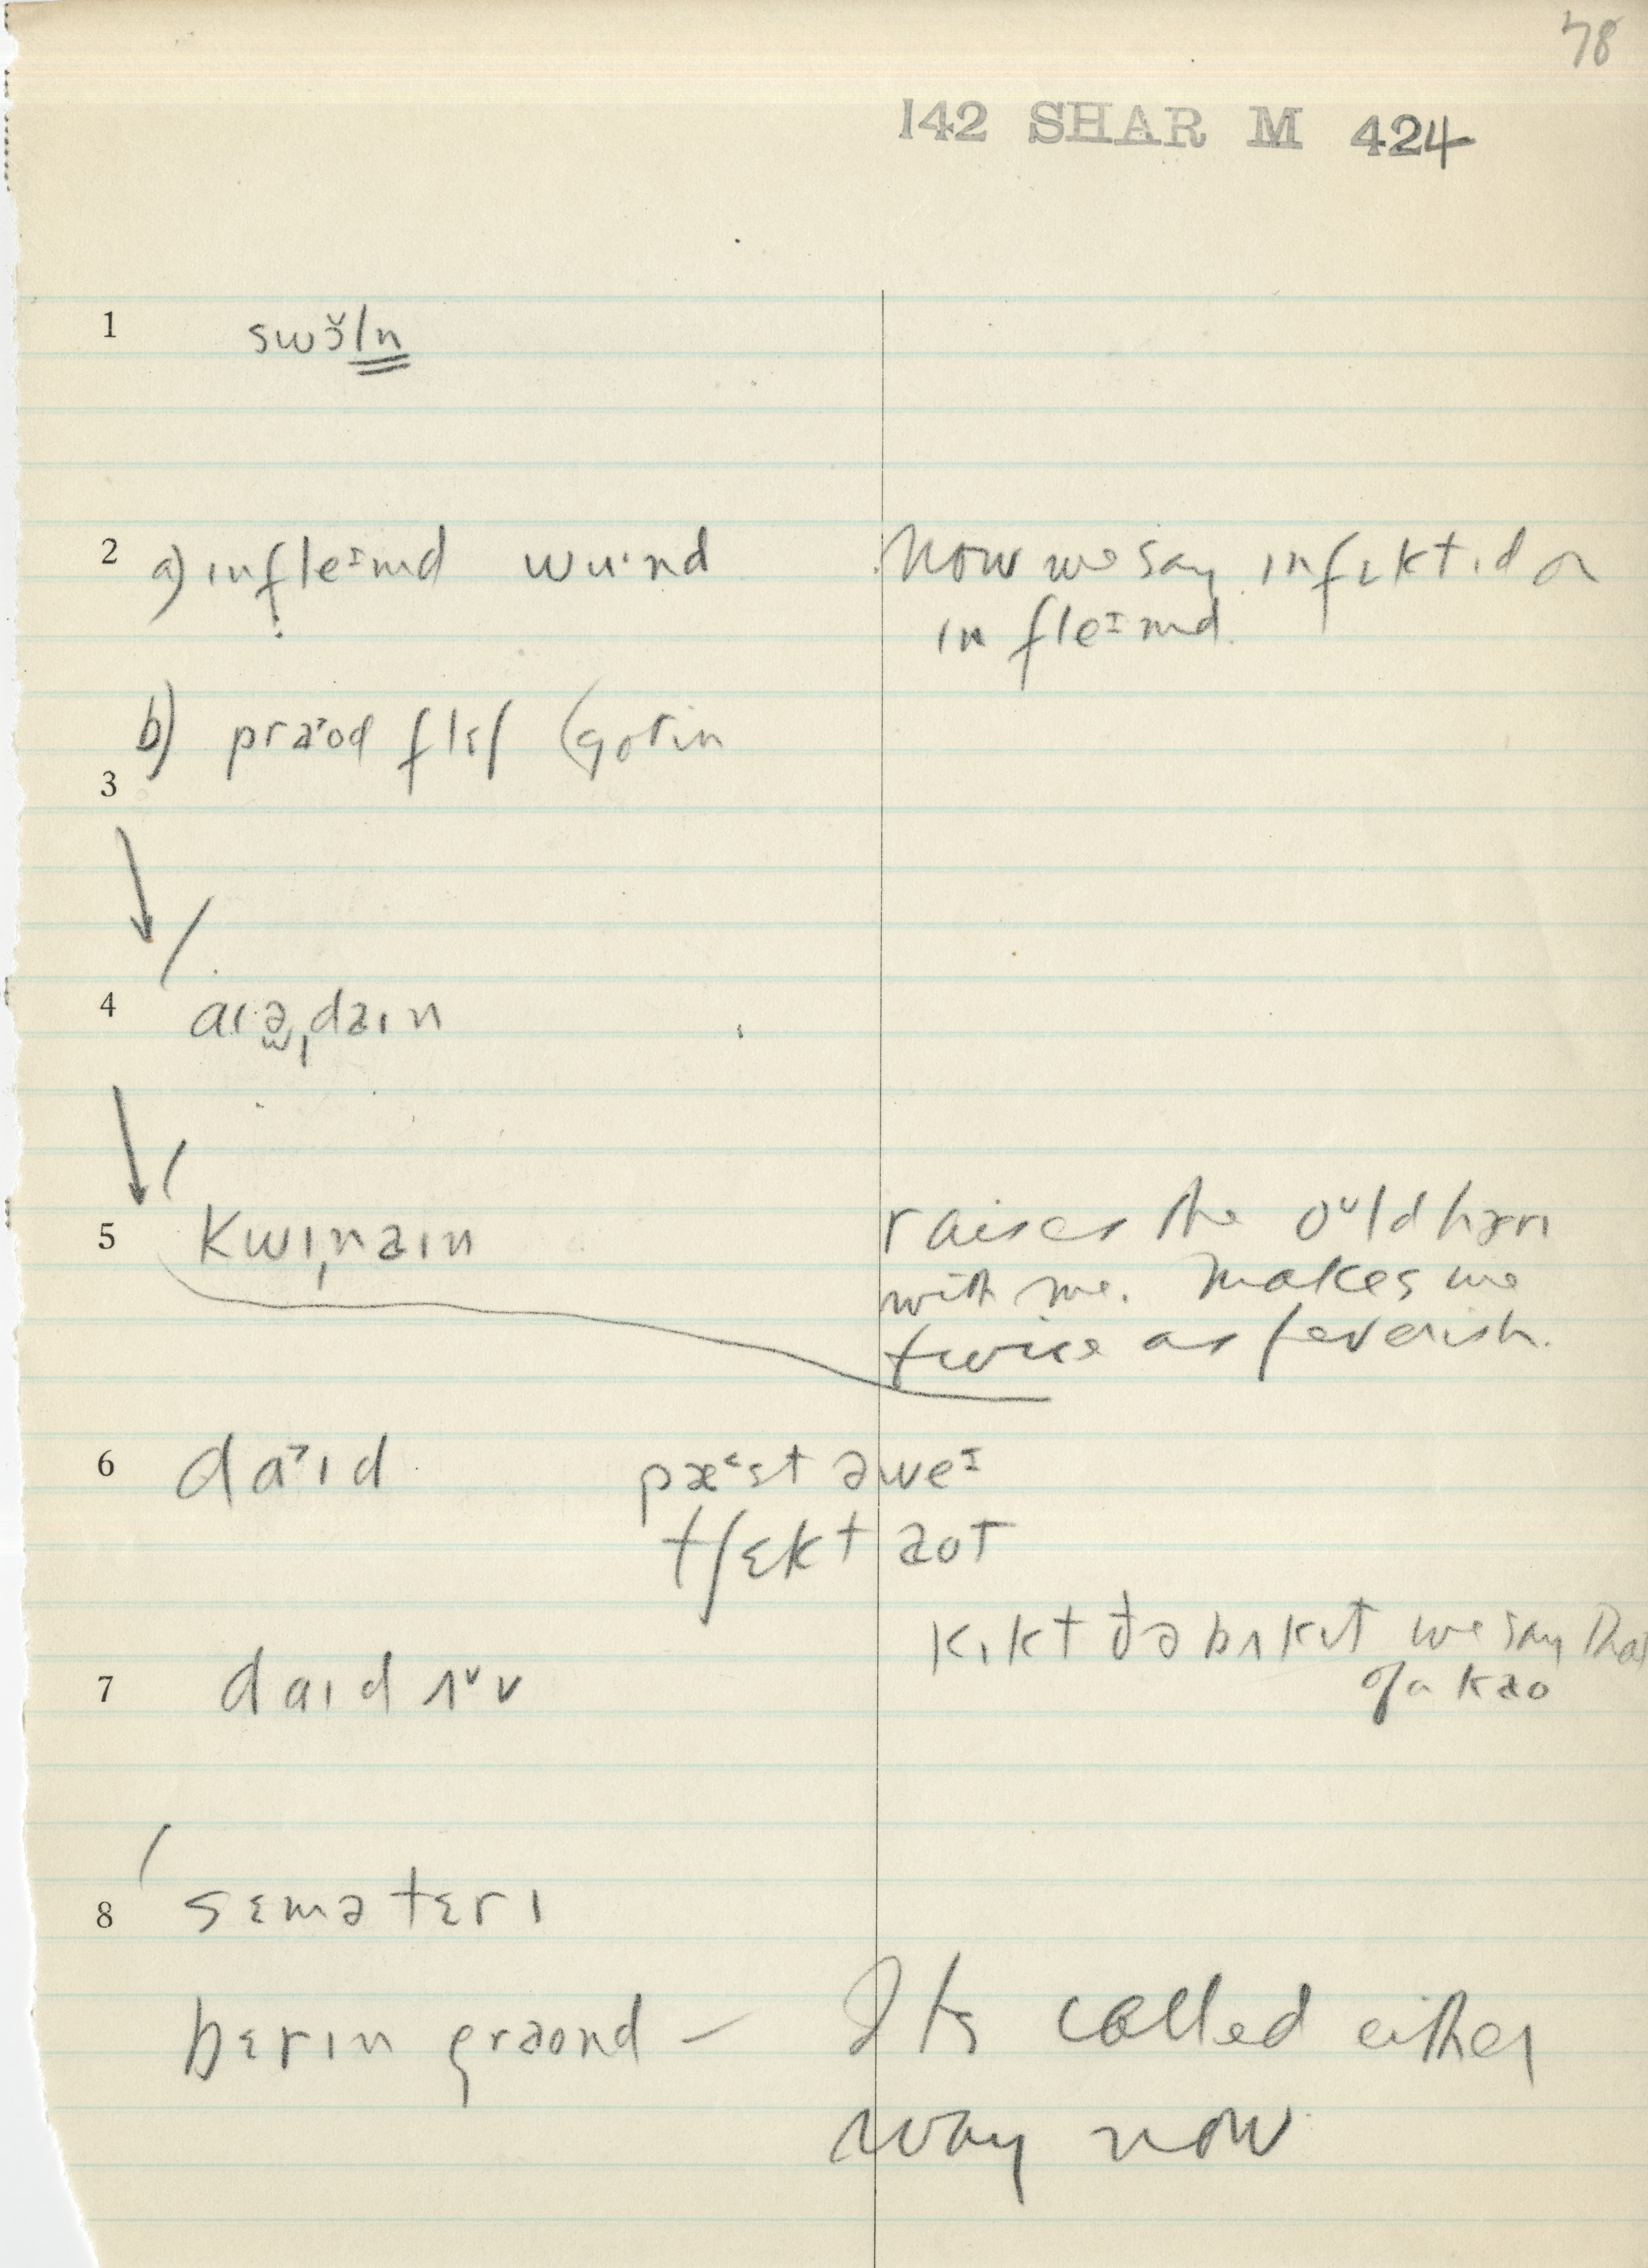 78
142 SHAR M 424
1 swɔ̆ln
2 a) ɪnfleᶦmd wu·nd
Now we say ɪnfɛktɪd or
ɪnfleᶦmd.
b) praˀod flɛʃ (gotin
3
4 aɪə̯daɪn
5 kwɪnaɪn
raises the oᵘld hærɪ
with me. Makes me
twice as feverish.
6 daˀɪd pæᵋst əweᶦ
tʃɛkt aot
kɪkt ðə bʌkɪt we say that
of a kao
7 daɪd ʌᵛv
8 sɛmətɛrɪ
bɛrɪn graond – Its called either
way now